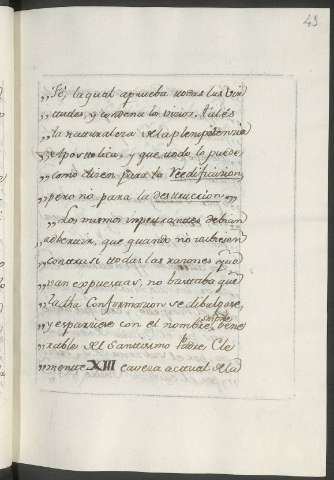 43
„Fé, la qual aprueba todas las vir
„tudes, y condena lo vicios. Tal és
„la naturaleza de la plenipotencia
„Apostolica, y que todo lo puede,
„como dicen para la reedificacion
„pero no para la destruccion
„Los mismos impetrantes debian
advertir, que quando no tubiesen
„contra si todas las razones que
„van expuestas, no bastaba que
„la dha Confirmazion se dibulgase,
„y esparciese con el nombre siempre vene
„rable del Santissimo Padre Cle
„mente XIII caveza actual de la